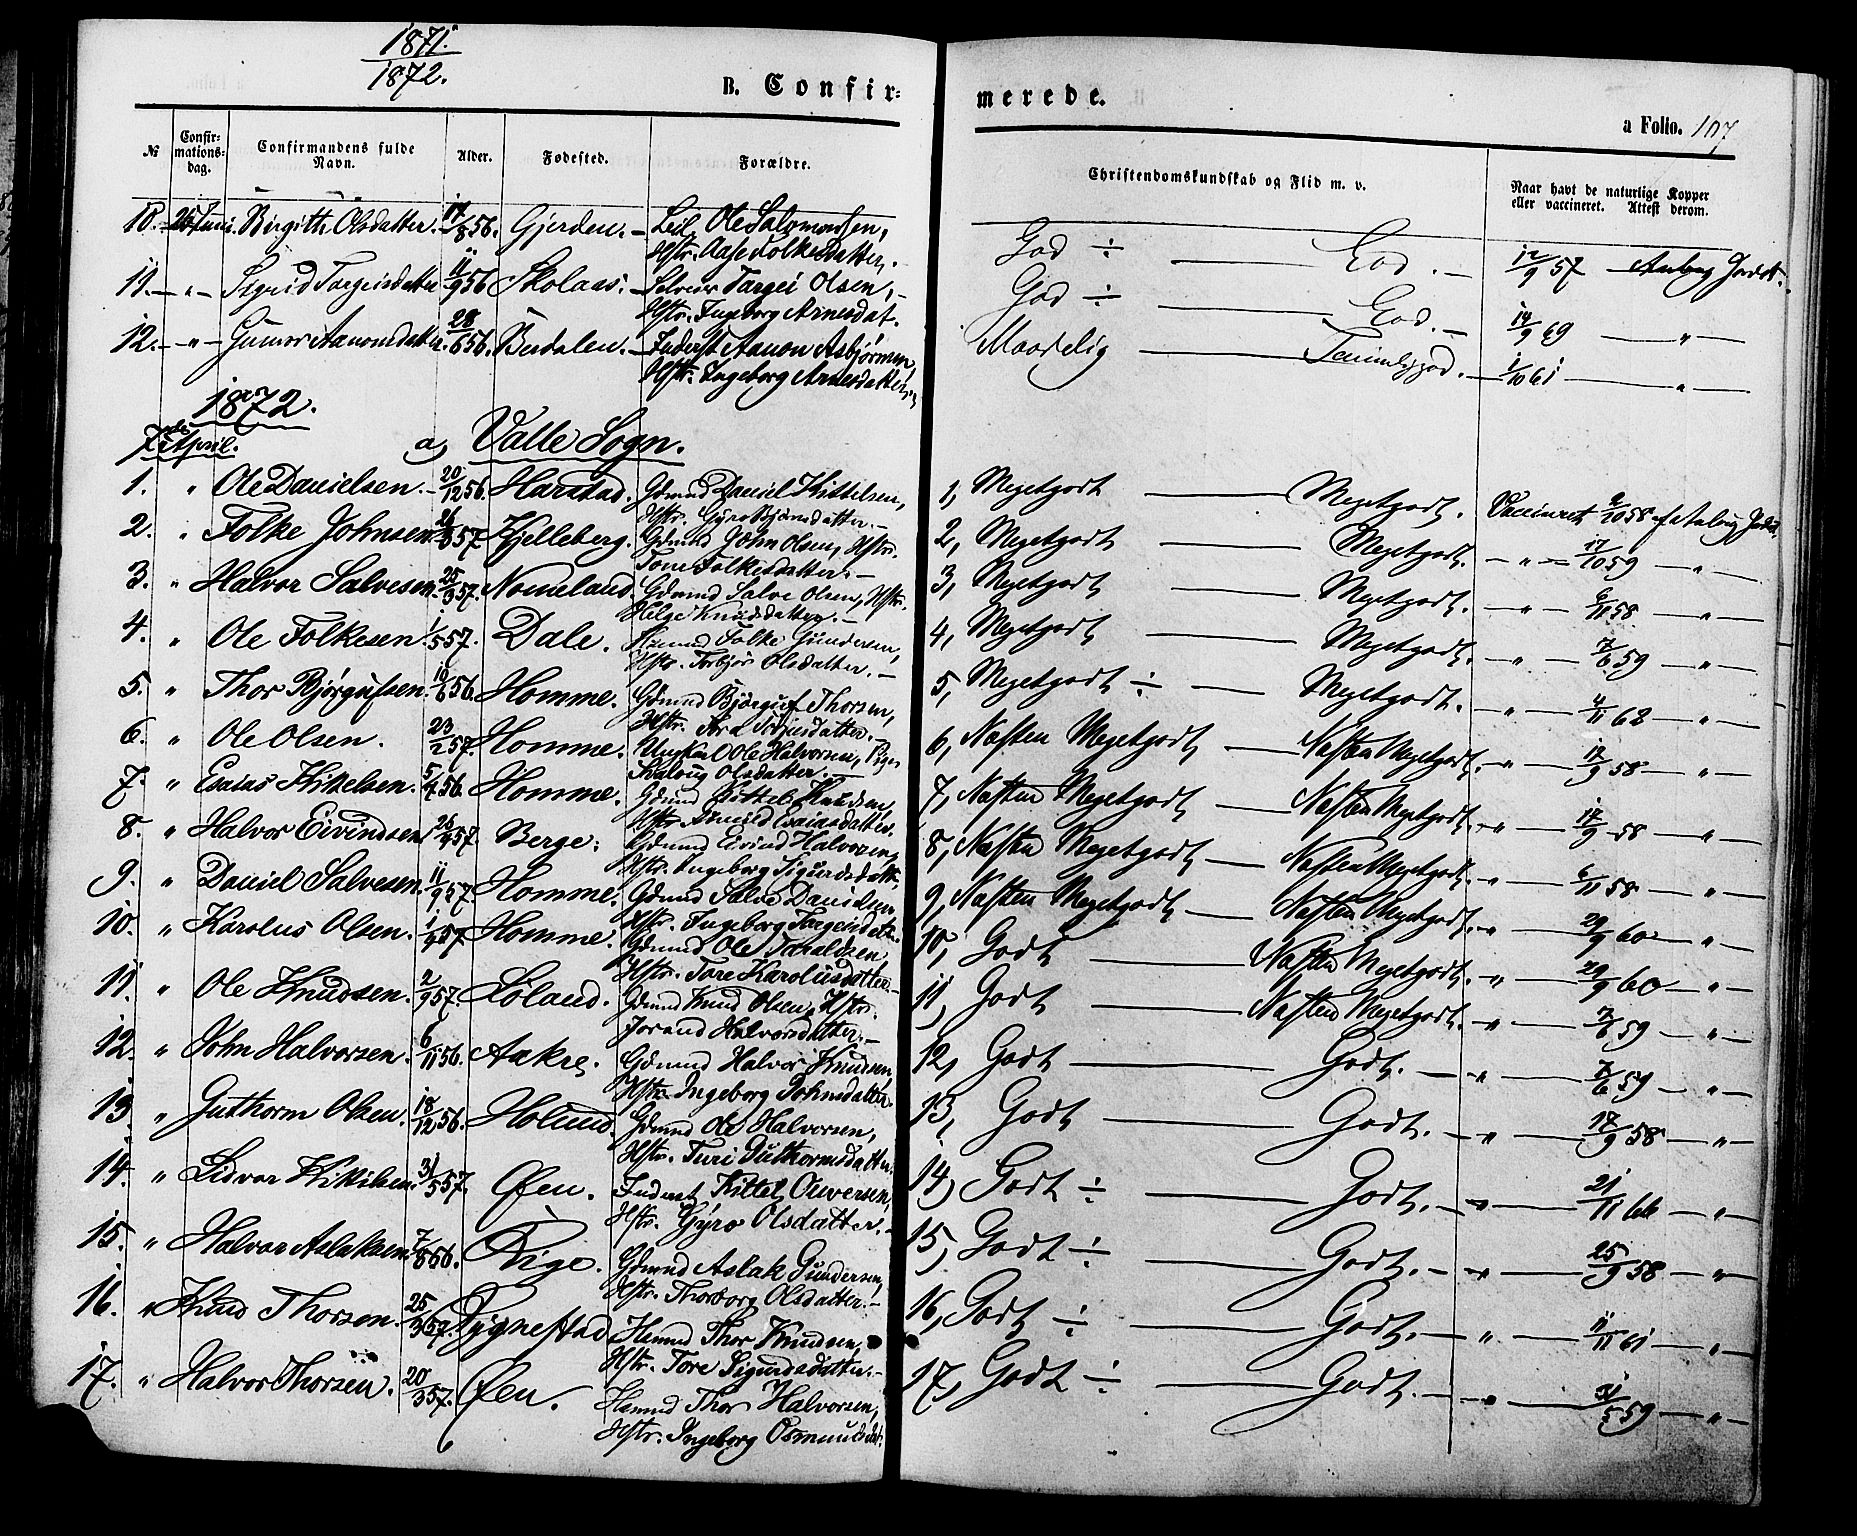 1871.
1872.
B. Confir-
merede.
a Folio. 107
№ Confir-mations-dag. Confirmandens fulde Navn. Alder. Fødested. Forældre.
Christendomskundskab og Flid m. v. Naar havt de naturlige Kopper eller vaccineret. Attest derom.
10. - 25 Juni. Birgith Olsdatter. 17/8 56. Gjerden. - Leil. Ole Salomonsen,
Hstr. Aase Folkesdatter. God ÷ — God. — 12/9 57 —
11. - " - Sigrid Targeisdatter 11/9 56 Skolaas. - Selveier Targei Olsen, -
Hstr. Ingeborg Arnesdat. God ÷ — God. — 14/9 69 — "
12. - " - Gunvor Aanonsdatter. 28/6 56. Berdalen. - Inderst Aanon Asbjørnsen,
Hstr. Ingeborg Arnesdatter. Maadelig — Temmeliggod. — 1/10 61 — "
1872.
7de April. a, Valle Sogn.
1. " Ole Danielsen. - 20/12 56. Harstad. Gdmnd Daniel Kittelsen,
Hstr. Gyro Bjørnsdatter. - 1, Megetgodt — Megetgodt. Vaccineret 2/10 58
2. " Folke Johnsen 57. Kjelleberg. Gdmnd John Olsen, Hstr.
Tone Folkesdatter. - 2, Megetgodt — Megetgodt. - " - 17/10 59 — "
3. " Halvor Salvesen. 25/9 57. Nomeland. Gdmnd Salve Olsen, Hstr.
Helge Knudsdatter. - 3, Megetgodt — Megetgodt. - " - 6/11 58 — "
4. " Ole Folkesen 1/5 57. Dale. Husmnd Folke Gundersen,
Hstr. Torbjør Olsdatter. - 4, Megetgodt — Megetgodt. - " - 7/6 59 — "
5. " Thor Bjørgufsen. 10/6 56. Homme. Gdmnd Bjørguf Thorsen,
Hstr. 5, Megetgodt ÷ — Megetgodt. - " - 4/11 62 — "
6. " Ole Olsen. 23/2 57. Homme. Ungkarl Ole Halvorsen, Pige
Olsdatter. - 6, Næsten Megetgodt — Næsten Megetgodt. - " - 17/9 58 — "
7. " Esaias Kittelsen. 5/7 56. Homme. Gdmnd Kittel Knudsen,
Hstr. Esaiasdatter. 7, Næsten Megetgodt — Næsten Megetgodt. - " - 17/9 58 — "
8. " Halvor Eivindsen 57. Berge. Gdmnd Eivind Halvorsen,
Hstr. Ingeborg Sigurdsdatt. 8, Næsten Megetgodt — Næsten Megetgodt. - " - 6/11 58 — "
9. " Daniel Salvesen 11/9 57 Homme. Gdmnd Salve Danielsen
Hstr. Ingeborg Targeisdatt. 9, Næsten Megetgodt — Næsten Megetgodt. - " - 29/9 60 — "
10. " Karolus Olsen. 57. Homme. Gdmnd Ole Taraldsen,
Hstr. Tore Karolusdatter. - 10, Godt — Næsten Megetgodt. " - 29/9 60 — "
11. " Ole Knudsen. 2/9 57. Løland. Gdmnd Knud Olsen, Hstr.
Jorand Halvorsdatter. - 11, Godt — Næsten Megetgodt. - " - 7/6 59 — "
12. " John Halvorsen. 6/11 56. Aakre. Gdmnd Halvor Knudsen,
Hstr. Ingeborg Johnsdatter. 12, Godt — Godt. - " - 7/6 59 — "
13. " Guthorm Olsen. 18/12 56. Holund. Gdmnd Ole Halvorsen,
Hstr. Turi Guthormsdatter. 13, Godt — Godt. - " - 17/9 58 — "
14. " Lidvor Kittilsen. 31/5 57. Øfen. Inderst Kittel Ouversen,
Hstr. Gyro Olsdatter. - 14, Godt ÷ — Godt. - " - 21/11 66 — "
15. " Halvor Aslaksen. 7/8 56. Rige. Gdmnd Aslak Gundersen,
Hstr. Thorborg Olsdatter. - 15, Godt ÷ — Godt. - " - 25/9 58 — "
16. " Knud Thorsen. 25/3 57. Rygnestad Husmnd Thor Knudsen,
Hstr. Tore Sigurdsdatter. - 16, Godt ÷ — Godt. - " - 11/11 61 — "
17. " Halvor Thorsen. 20/3 57. Øfen. Husmnd Thor Halvorsen,
Hstr. Ingeborg Osmundsdat. 17, Godt ÷ — Godt. - " - 31/5 59 — "